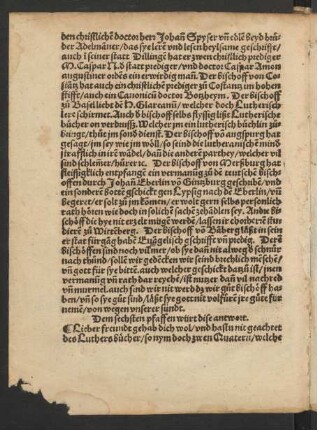 den christliche doctor herr Johañ Spyser vñ edle beyd brü⸗
der Adelmäner/das sy lere vnd lesen heylsame geschrifte/
auch in seiner statt Dillingē hat er zwen christlich prediger
M. Caspar N. ð statt prediger/vnd doctor Caspar Amon
augustiner ordēs ein erwirdig man. Der bischoff von Co⸗
stātz hat auch ein christliche prediger zů Costantz im hohen
stiffte/auch ein Canonicū doctor Botzheym. Der bischoff
zů Basel liebt dē H. Glareanū/welcher doch Lutherisch
lere schirmet. Auch ð bischoff selbs flyssig lißt Lutherische
bücher on verdruß. Welcher jm ein lutherisch büchlin zů⸗
bringt/thůt jm sond dienst. Der bischoff vō augspurg hat
gesagt/jm sey wie jm wöll/so seind die lutheranische mind
strafflich in irē wādel/dañ die anderē parthey/welcher vil
sind schlemer/hůrer ꝛc. Der bischoff von Merßburg hat
fleissigklich entpfangē ein vermanūg zů dē teutschē bischo
offen durch Johañ Eberlin vō Gintzburg geschribē/vnd
ein sondere botte geschickt gen Lypsig nach dē Eberlin/vñ
begeret/er solt zů jm kōmen/er wolt gern selbs personlich
rath hören wie doch in solichē sachē zehādlen sey. And bi⸗
schöff die hye nit erzelt mügē werdē/lassen ir chorherrē stu
dierē zů Wittēberg. Der bischoff vō Bāberg lāßt in sein
er stat fürgāg habē Euāgelisch geschrifft vñ predig. Der
bischöffen sind noch vil mer/ob sye dañ nit alweg ð schnůr
nach thůnd/sollē wir gedēcken wir seind brechlich mēschē/
vñ gott für sy bittē. auch welcher geschickt dazů ist/jmen
vermanūg vñ rath dar reychē/ist nützer dañ vil nach redē
vñ murmel. auch sind wir nit werd ðz wir gůt bischōff ha
ben/vñ so sye gůt sind/läßt sye gott nit volfürē jre gůte für
nemē/von wegen vnserer sünd.
Dem sechsten pfaffen würt dise antwort.
¶ Lieber freundt gehab dich wol/vnd hastu nit geachtet
des Luthers bücher/so nym doch zwen Quatern/welche